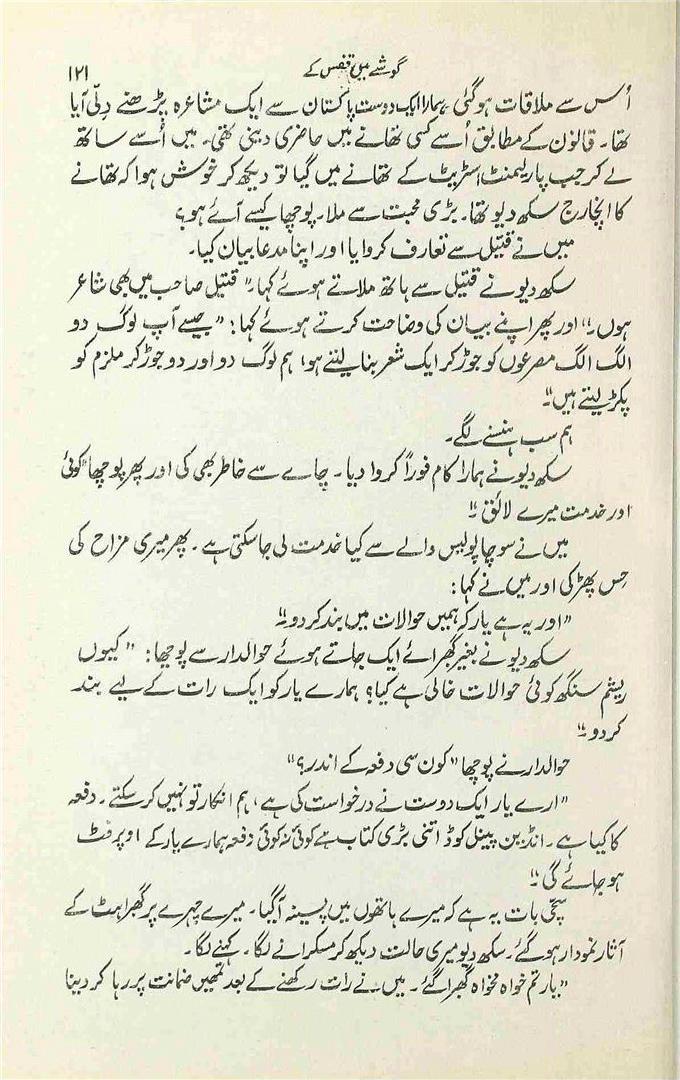 گوشے میں قفس کے ۱۲۱
اُس سے ملاقات ہوگئی، ہمارا ایک دوست پاکستان سے ایک مشاعرہ پڑھنے دلّی آیا
تھا۔ قانون کے مطابق اُسے کسی تھانے میں حاضری دینی تھی۔ میں اُسے ساتھ
لے کر جب پارلیمنٹ اسٹریٹ کے تھانے میں گیا تو دیکھ کر خوش ہوا کہ تھانے
کا انچارج سکھ دیو تھا۔ بڑی محبت سے ملا۔ پوچھا کیسے آئے ہو؟
میں نے قتیل سے تعارف کروایا اور اپنا مدعا بیان کیا۔
سکھ دیو نے قتیل سے ہاتھ ملاتے ہوئے کہا۔ "قتیل صاحب میں بھی شاعر
ہوں۔" اور پھر اپنے بیان کی وضاحت کرتے ہوئے کہا: "جیسے آپ لوگ دو
الگ الگ مصرعوں کو جوڑ کر ایک شعر بنا لیتے ہو، ہم لوگ دو اور دو جوڑ کر ملزم کو
پکڑ لیتے ہیں۔"
ہم سب ہنسنے لگے۔
سکھ دیو نے ہمارا کام فوراً کروا دیا۔ چاے سے خاطر بھی کی اور پھر پوچھا "کوئی
اور خدمت میرے لائق۔"
میں نے سوچا پولیس والے سے کیا خدمت لی جا سکتی ہے۔ پھر میری مزاح کی
حِس پھڑکی اور میں نے کہا:
"اور یہ ہے یار کہ ہمیں حوالات میں بند کر دو۔"
سکھ دیو نے بغیر گھبرائے ایک جاتے ہوئے حوالدار سے پوچھا: "کیوں
ریشم سنگھ کوئی حوالات خالی ہے کیا؟ ہمارے یار کو ایک رات کے لیے بند
کر دو۔"
حوالدار نے پوچھا "کون سی دفعہ کے اندر؟"
"ارے یار ایک دوست نے درخواست کی ہے، ہم انکار تو نہیں کر سکتے۔ دفعہ
کا کیا ہے۔ انڈین پینل کوڈ اتنی بڑی کتاب ہے کوئی نہ کوئی دفعہ ہمارے یار کے اوپر فٹ
ہو جائے گی۔"
سچی بات یہ ہے کہ میرے ہاتھوں میں پسینہ آگیا۔ میرے چہرے پر گھبراہٹ کے
آثار نمودار ہوگئے۔ سکھ دیو میری حالت دیکھ کر مسکرانے لگا۔ کہنے لگا۔
"یار تم خواہ مخواہ گھبرا گئے۔ میں نے رات رکھنے کے بعد تمھیں ضمانت پر رہا کر دینا